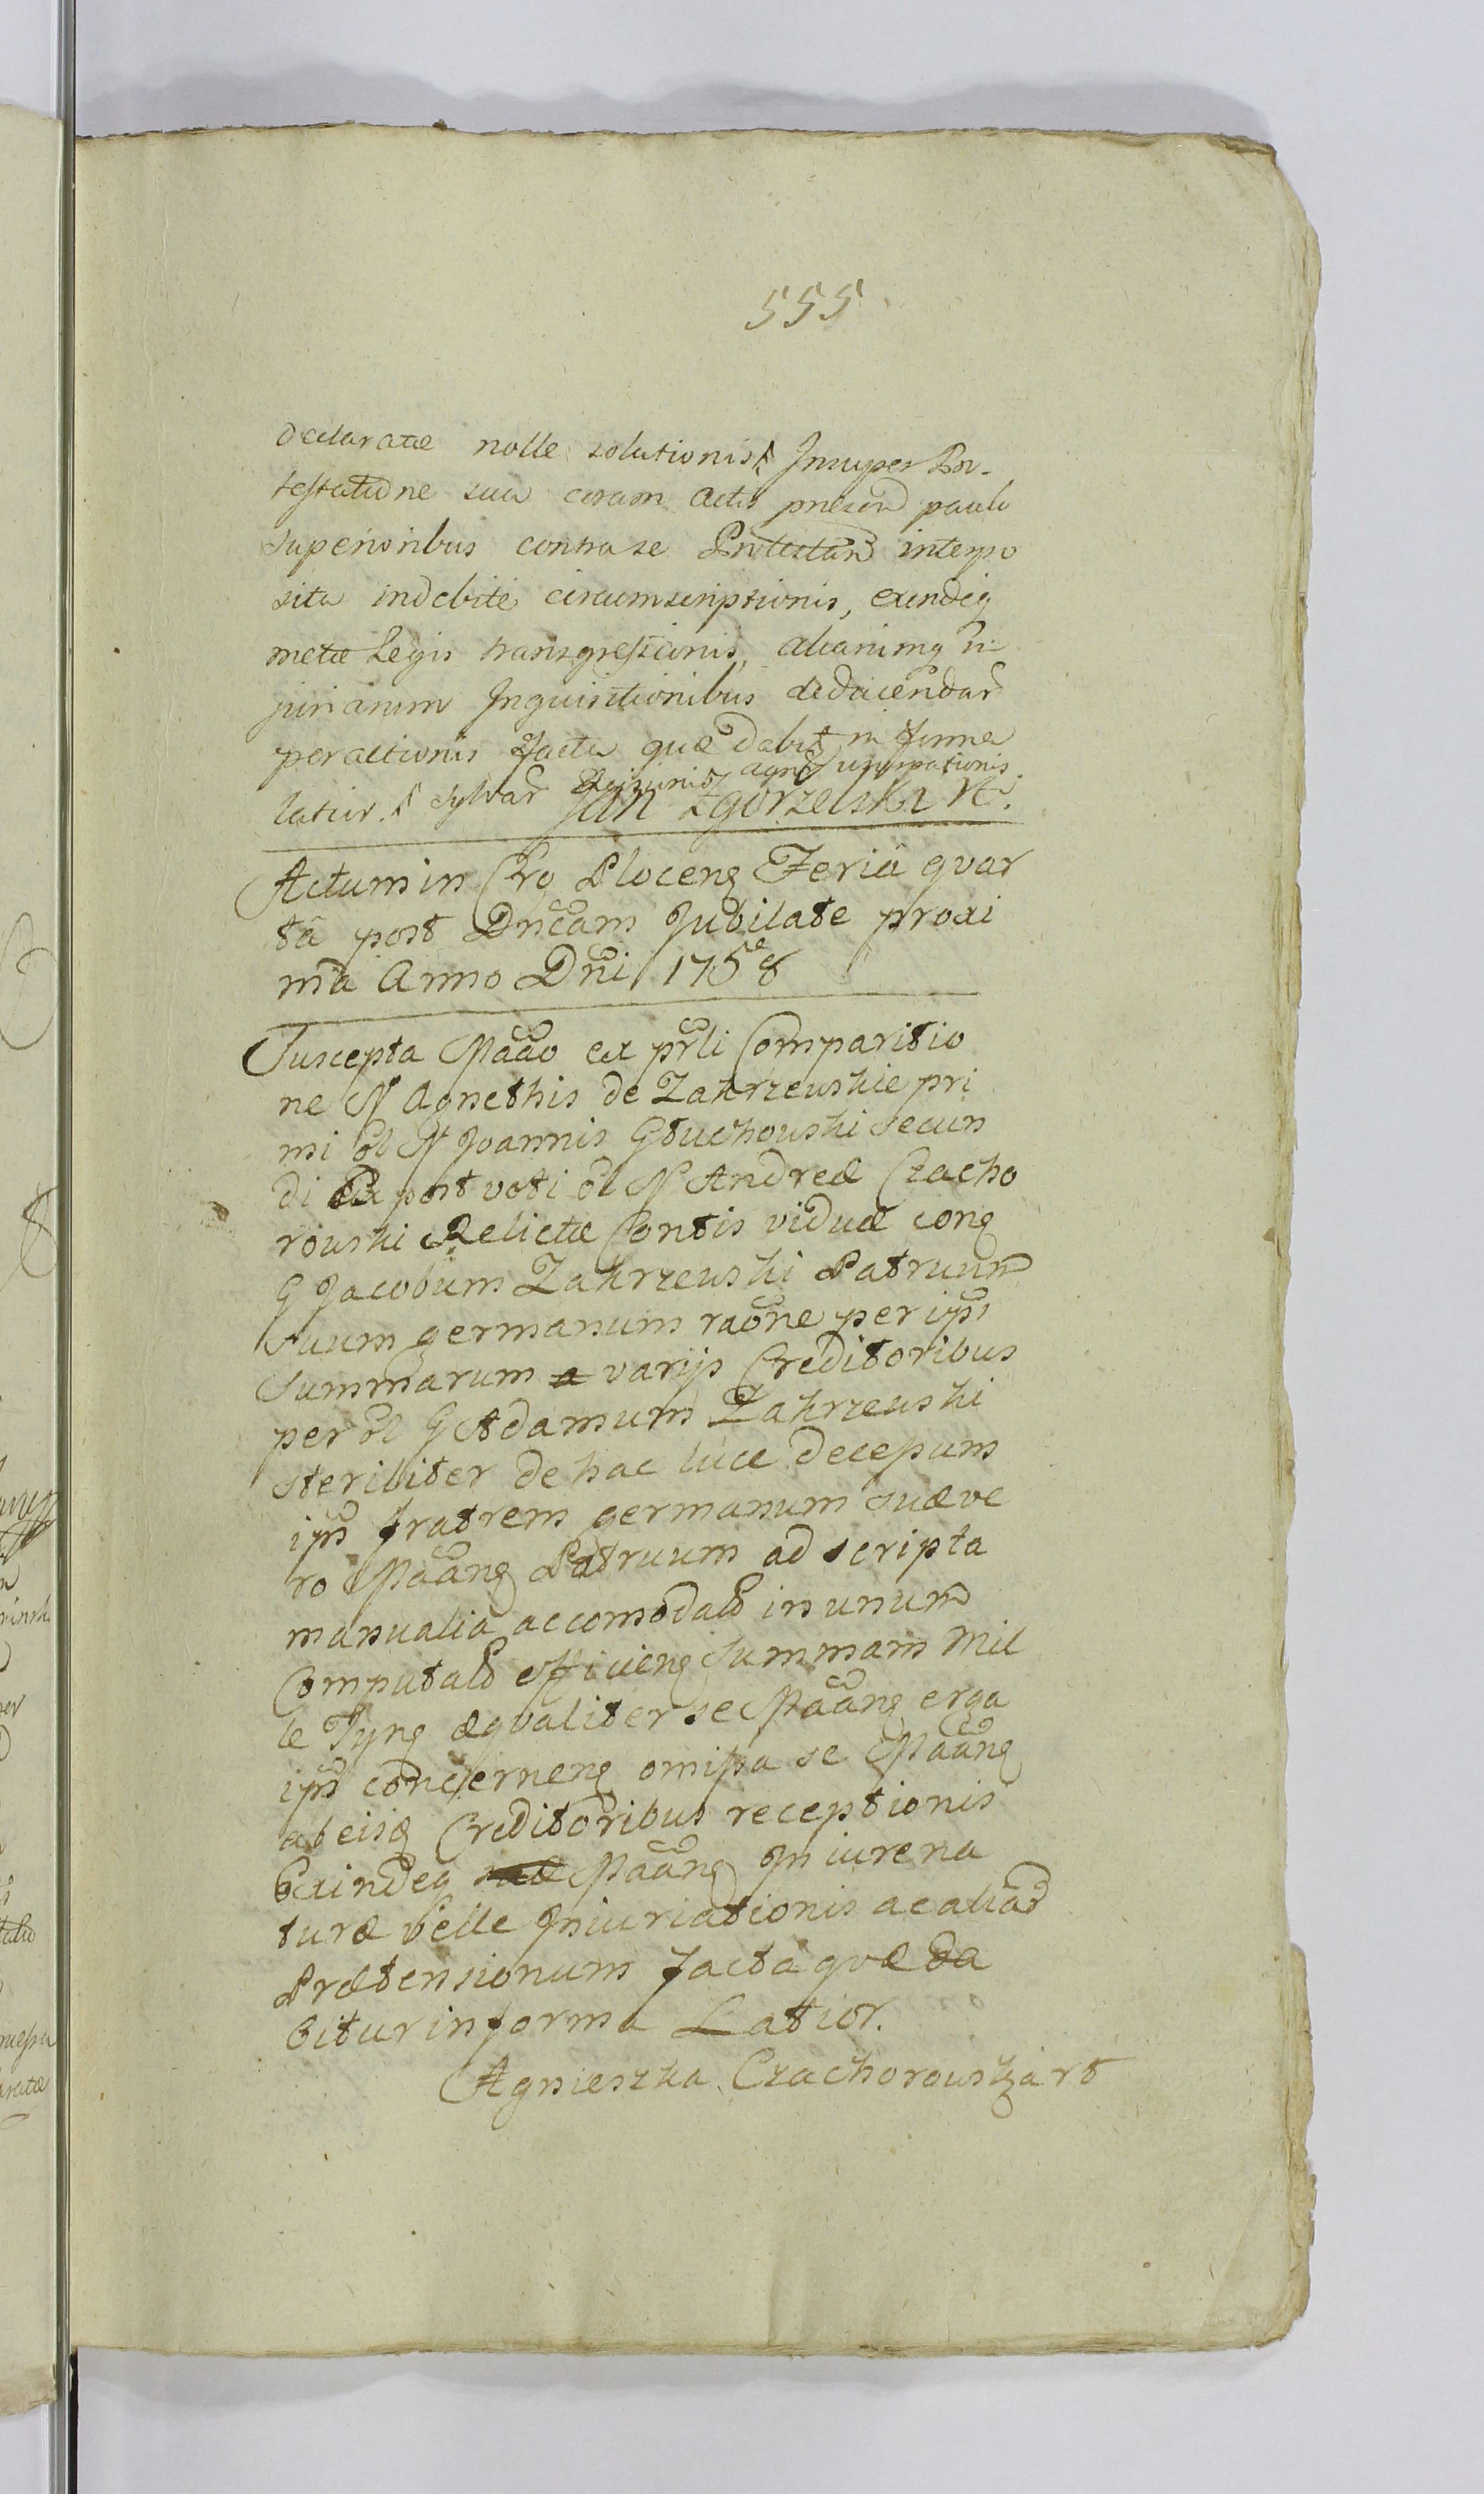 555
declaratæ nolle solutionis Insuper Pro-
testatione sua coram Actis præsen paulo
superioribus contra se Protestan interpo
sita indebite circumscriptionis, exindeq
metæ Legis transgressionis, aliarumq in
juriarum Inquisitionibus deducendar
peractionis facta quæ dabit in forma
latiur. sylvar agror usurpationis
Jan Zgorzelski
Actum in Cro Plocenq Feria quar
ta post Dncam Jubilate proxi
ma Anno Dni 1758
Suscepta Maão ex prli Comparitio
ne N Agnethis de Zakrzewskie pri
mi ol N Joannis Głuchowski secun
di post voti ol N Andreæ Czacho
rowski Relictæ Contis viduæ conq
G Jacobum Zakrzewski Patruum
suum germanum raõne per ips
Summarum a varys Creditoribus
per ol G Adamum Zakrzewski
steriliter de hac luce decessum
ips fratrem germanum suæ ve
ro Maãnq Patruum ad scripta
manualia accomodat in unum
Computat efficienq Summam Mil
le Tynq æqualiter se Maãnq erga
ips concernenq omissa se Maãnq
ab eisq Creditoribus receptionis
Exindeq Maãnq In iure na
turæ velle Iniuriationis ac aliar
Prætensionum facta quæ da
bitur in forma Latior.
Agnieszka Czachorowska